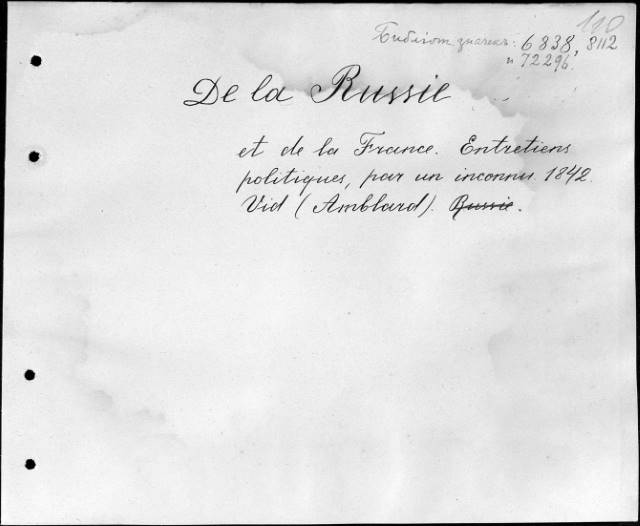 110
Библіот. значекъ: 6838, 8112
и 72296.
De la Russie
et de la France. Entretiens
politiques, par un inconnu. 1842.
Vid (Amblard). Russie.